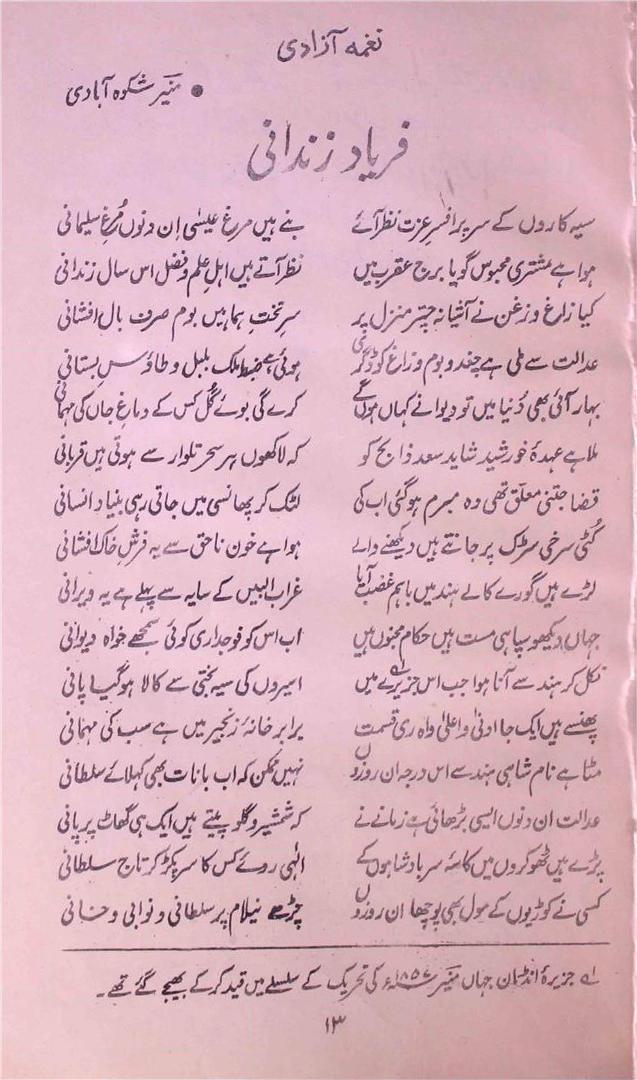 نغمہ آزادی
● منیر شکوہ آبادی
فریاد زندانی
سیہ کاروں کے سر پر افسرِ عزت نظر آئے بنے ہیں مرغ عیسیٰ اِن دنوں مُرغِ سلیمانی
ہوا ہے مشتری محبوس گویا برج عقرب میں نظر آتے ہیں اہلِ علم و فضل اس سال زندانی
کیا زاغ و زغن نے آشیانہ چتر منزل پر سرِ تختِ ہما ہیں بوم صرف بال افشانی
عدالت سے ملی ہے چغد و بوم و زاغ کو ڈگری ہوئی ہے ضبط ملک بلبل و طاؤسِ بستانی
بہار آئی بھی دُنیا میں تو دیوانے کہاں ہوں گے کرے گی بوئے گُل کس کے دماغِ جاں کی مہمانی
ملا ہے عہدۂ خورشید شاید سعد ذابح کو کہ لاکھوں ہر سحر تلوار سے ہوتی ہیں قربانی
قضا جتنی معلّق تھی وہ مبرم ہوگئی اب کی لٹک کر پھانسی میں جاتی رہی بنیاد انسانی
کُٹی سرخی سڑک پر جانتے ہیں دیکھنے والے ہوا ہے خون ناحق سے یہ فرشِ خاک افشانی
لڑے ہیں گورے کالے ہند میں باہم غضب آیا غراب البیں کے سایہ سے پہلے ہے یہ ویرانی
جہاں دیکھو سپاہی مست ہیں حکام مجنوں ہیں اب اس کو فوجداری کوئی سمجھے خواہ دیوانی
نکل کر ہند سے آنا ہوا جب اس جزیرے میں ؂۱ اسیروں کی سیہ بختی سے کالا ہوگیا پانی
پھنسے ہیں ایک جا ادنیٰ و اعلیٰ واہ ری قسمت برابر خانۂ زنجیر میں ہے سب کی مہمانی
مٹا ہے نام شاہی ہند سے اس درجہ ان روزوں نہیں ممکن کہ اب بانات بھی کہلائے سلطانی
عدالت ان دنوں ایسی بڑھائی ہے زمانے نے کہ شمشیر و گلو پیتے ہیں ایک ہی گھاٹ پر پانی
پڑے ہیں ٹھوکروں میں کاسۂ سر بادشاہوں کے الٰہی روئے کس کا سر پکڑ کر تاج سلطانی
کسی نے کوڑیوں کے مول بھی پوچھا ان روزوں چڑھے نیلام پر سلطانی و نوابی و خانی
؂۱ جزیرۂ انڈمان جہاں منیر ۱۸۵۷ء کی تحریک کے سلسلے میں قید کرکے بھیجے گئے تھے۔
۱۳